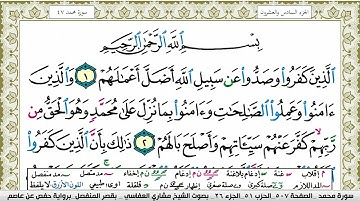 الجزء السادس والعشرون
سورة محمد ٤٧
بِسْمِ ٱللَّهِ ٱلرَّحْمَٰنِ ٱلرَّحِيمِ
ٱلَّذِينَ كَفَرُوا۟ وَصَدُّوا۟ عَن سَبِيلِ ٱللَّهِ أَضَلَّ أَعْمَٰلَهُمْ ١ وَٱلَّذِينَ
ءَامَنُوا۟ وَعَمِلُوا۟ ٱلصَّٰلِحَٰتِ وَءَامَنُوا۟ بِمَا نُزِّلَ عَلَىٰ مُحَمَّدٍ وَهُوَ ٱلْحَقُّ مِن
رَّبِّهِمْ كَفَّرَ عَنْهُمْ سَيِّـَٔاتِهِمْ وَأَصْلَحَ بَالَهُمْ ٢ ذَٰلِكَ بِأَنَّ ٱلَّذِينَ كَفَرُوا۟
سورة محمد الصفحة ٥٠٧ الحزب ٥١ الجزء ٢٦ بصوت الشيخ مشاري العفاسي بقصر المنفصل برواية حفص عن عاصم